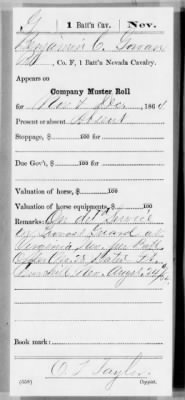 G | 1 Batt'n Cav. | Nev.
Benjamin C.
Pvt., Co. F, 1 Batt'n Nevada Cavalry.
Appears on
Company Muster Roll
for Nov & Dec, 1864
Present or absent Absent
Stoppage, $ 100 for
Due Gov't, $ 100 for
Valuation of horse, $ 100
Valuation of horse equipments, $ 100
Remarks: On det Service
as Provost Guard at
Virginia Nev. per Batt
Order No. 28 dated Ft.
Churchill Nev. Augt 24/64
Book mark:
O T Taylor
(358) Copyist.